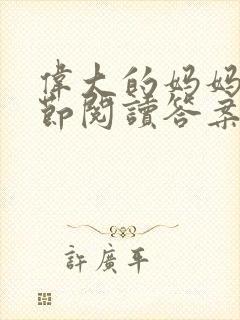 偉大的妈妈
節閱讀答案
許廣平